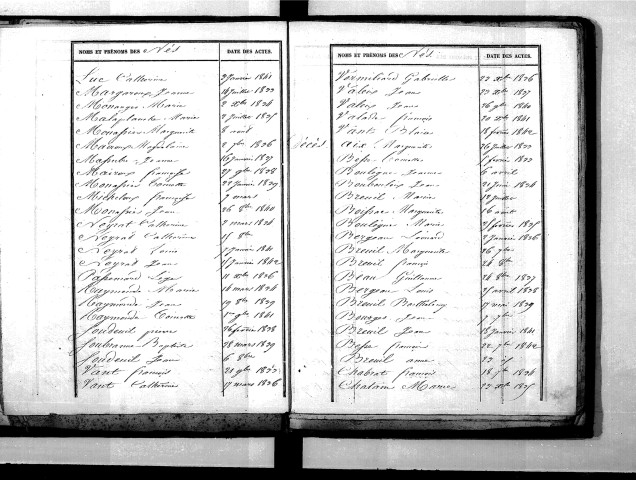 NOMS ET PRÉNOMS DES Nés DATE DES ACTES.
Luc Catherine 3 janvier 1841
Margaroux Jeanne 16 juillet 1833
Monanges Marie 2 xbre 1834
Malaplanche Marie 2 juillet 1835
Monassier Marguerite 8 août
Mairoux Napoléon 2 7bre 1836
Jeanne 16 janvier 1837
Mairoux françoise 27 9bre 1838
Monassier Toinette 22 janvier 1839
françoise 7 mars
Monassier Jean 26 8bre 1840
Neyrat Catherine 2 mars 1834
Neyrat Catherine 15 8bre
Neyrat Louis 1840
Neyrat Jean janvier 1842
11 xbre 1836
Raymondie Marie 16 mars 1834
Raymondie Jean 19 8bre 1839
Raymondie Toinette 1er 9bre 1841
Soudeuil pierre 26 février 1838
Souleranne Baptiste 28 mars 1839
Soudeuil Jean 6 8bre
Vant françois 21 9bre 1833
Vant Catherine 17 mars 1836
NOMS ET PRÉNOMS DES Nés. DATE DES ACTES.
Vermeillard Gabrielle 22 xbre 1836
Valeix Jean 23 xbre 1837
Valeix Jean 26 9bre 1840
Valade françois 20 xbre 1841
Vant Blaise 18 février 1842
Décès Aix Marguerite 26 juillet 1833
Besse Toinette février 1833
Boulegue Jeanne 6 avril
Bonbarloux Jean 21 juin 1834
Breuil Marie 12 juillet
Boissac Marguerite 16 août
Boulegue Marie 21 février 1835
Bergeau Léonard 2 janvier 1836
Breuil Marguerite 26 7bre
Breuil françois 26 8bre
Beau Guillaume 26 8bre 1837
Bergeau Louis 25 avril 1838
Breuil Barthélemy 17 mai 1839
Bourges Jean 7bre
Breuil Jean 18 janvier 1841
Besse françois 22 7bre 1842
Breuil anne 23
Chabrat françois 18 7bre 1834
Chatain Marie 22 xbre 1835